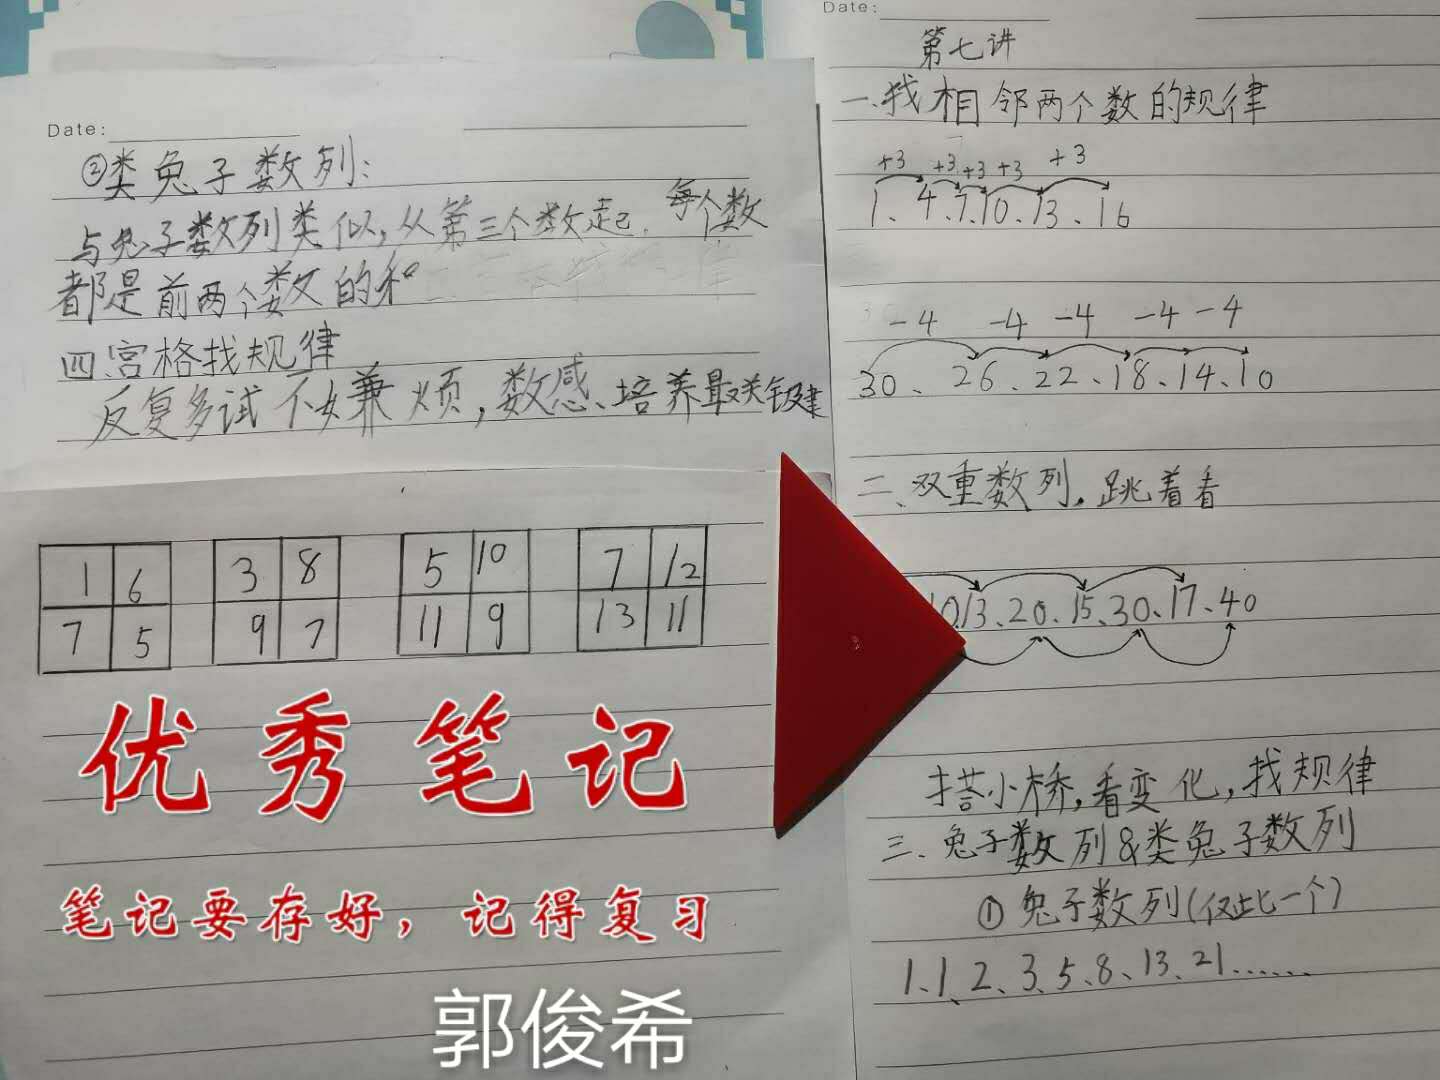 Date:
第七讲
一、找相邻两个数的规律
+3 +3 +3 +3 +3
1、4、7、10、13、16
-4 -4 -4 -4 -4
30、26、22、18、14、10
二、双重数列，跳着看
10、13、20、15、30、17、40
搭小桥，看变化，找规律
三、兔子数列&类兔子数列
①兔子数列(仅此一个)
1、1、2、3、5、8、13、21……
Date:
②类兔子数列：
与兔子数列类似，从第三个数起，每个数
都是前两个数的和
四宫格找规律
反复多试不嫌烦，数感、培养最关键
1 6 3 8 5 10 7 12
7 5 9 7 11 9 13 11
优秀笔记
笔记要存好，记得复习
郭俊希